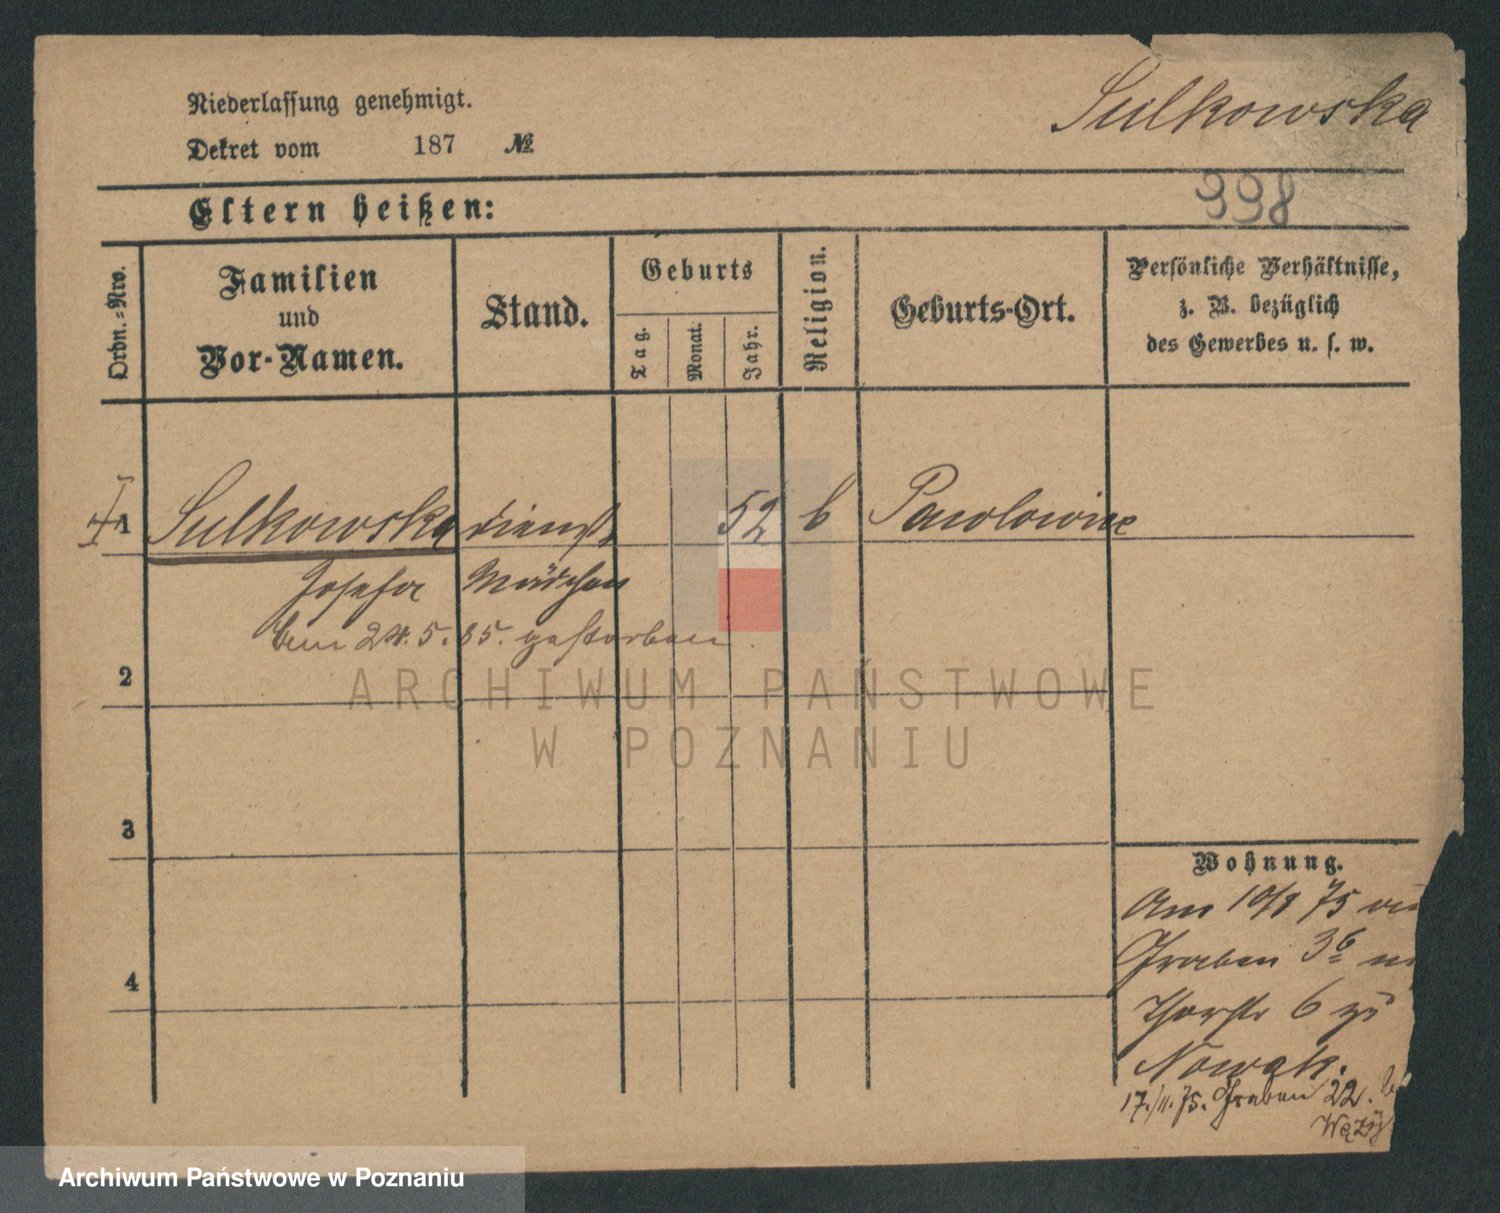 Sulkowska
Niederlassung genehmigt.
Dekret vom 187 №
998
Eltern heißen:
Ordn.-Nro.
Familien
und
Vor-Namen.
Stand.
Geburts
Tag.
Monat.
Jahr.
Religion.
Geburts-Ort.
Persönliche Verhältnisse,
z. B. bezüglich
des Gewerbes u. s. w.
1 Sulkowska dienst 52 k Pawlowice
Josefa Mädchen
den 24.5.85. gestorben.
2
3
4
Wohnung.
Am 10/8 75 von
Graben 36
Thorstr 6 zu
Nowak.
17./11.75. Graben 22. b
ARCHIWUM PAŃSTWOWE
W POZNANIU
Archiwum Państwowe w Poznaniu